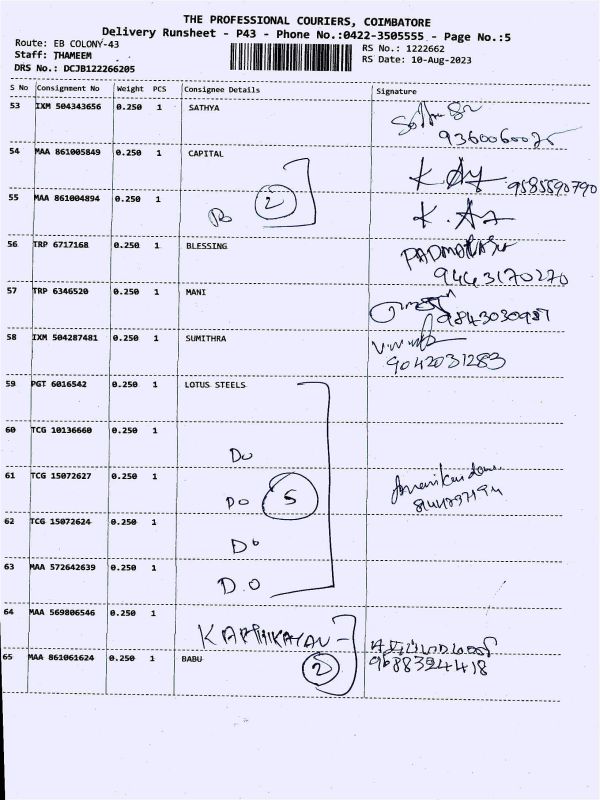 THE PROFESSIONAL COURIERS, COIMBATORE
Delivery Runsheet - P43 - Phone No.:0422-3505555 - Page No.:5
Route: EB COLONY-43
RS No.: 1222662
Staff: THAMEEM
RS Date: 10-Aug-2023
DRS No.: DCJB122266205
S No Consignment No Weight PCS Consignee Details Signature
53 IXM 504343656 0.250 1 SATHYA
54 MAA 861005849 0.250 1 CAPITAL K
9585590790
55 MAA 861004894 0.250 1 2 K.
56 TRP 6717168 0.250 1 BLESSING
9443170270
57 TRP 6346520 0.250 1 MANI
9843030987
58 IXM 504287481 0.250 1 SUMITHRA
9042031283
59 PGT 6016542 0.250 1 LOTUS STEELS
60 TCG 10136660 0.250 1
Do
61 TCG 15072627 0.250 1
Do 5
62 TCG 15072624 0.250 1
Do
63 MAA 572642639 0.250 1
D.O
64 MAA 569806546 0.250 1
KARTHIKAYAN -
65 MAA 861061624 0.250 1 BABU 2 9688324418